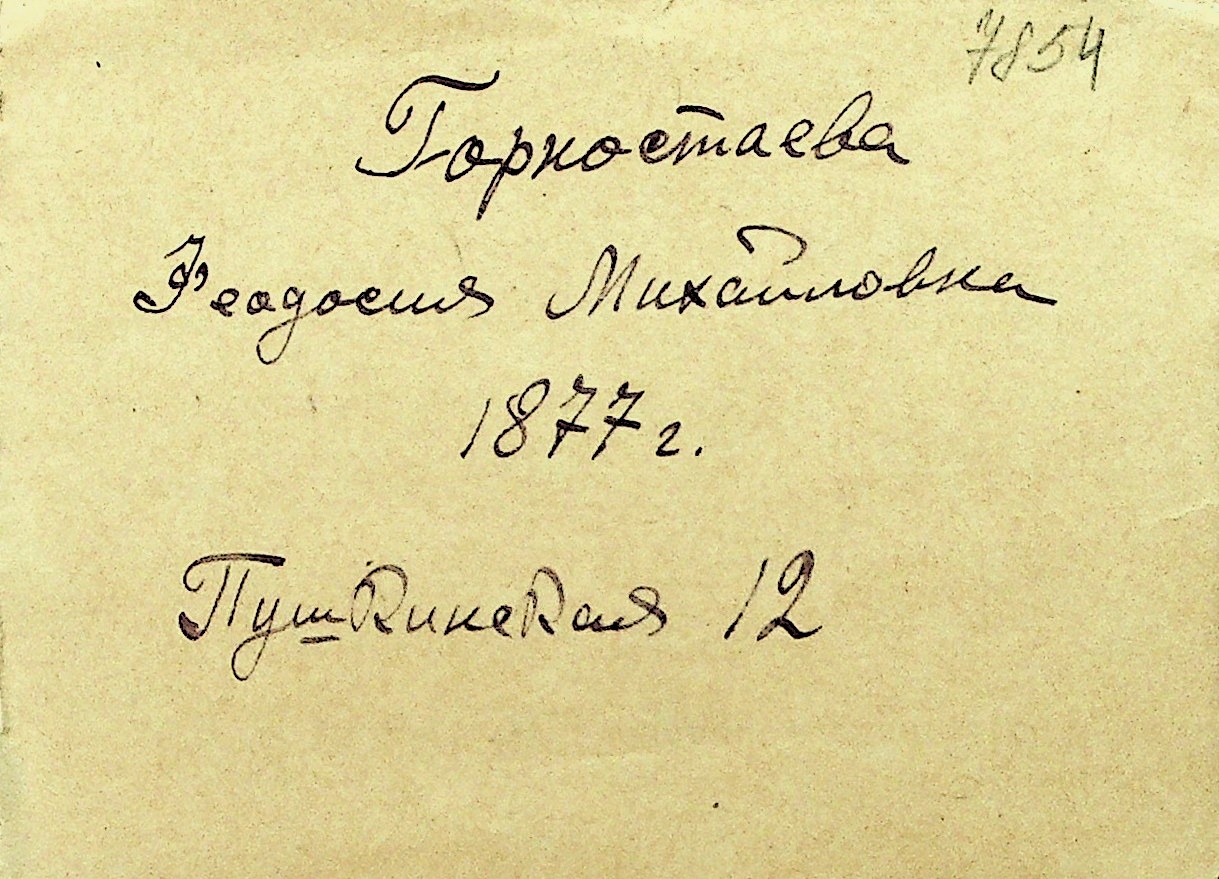 7854
Горностаева
Феодосия Михайловна
1877 г.
Пушкинская 12